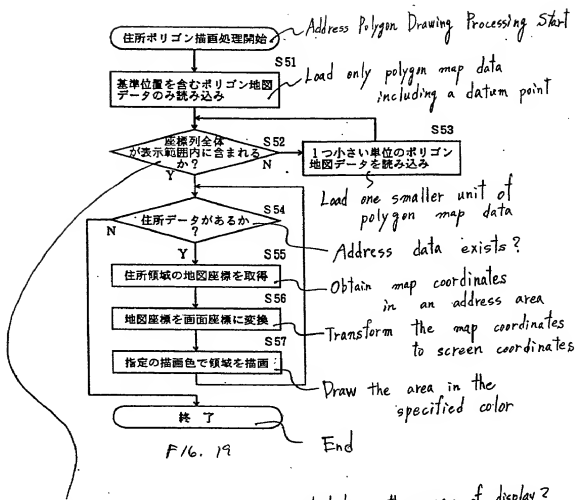 住所ポリゴン描画処理開始
Address Polygon Drawing Processing Start
S51
基準位置を含むポリゴン地図
データのみ読み込み
Load only polygon map data
including a datum point
座標列全体
が表示範囲内に含まれる
か?
S52
Y
N
S53
1つ小さい単位のポリゴン
地図データを読み込み
Load one smaller unit of
polygon map data
住所データがあるか
?
S54
N
Y
Address data exists?
S55
住所領域の地図座標を取得
Obtain map coordinates
in an address area
S56
地図座標を画面座標に変換
Transform the map coordinates
to screen coordinates
S57
指定の描画色で領域を描画
Draw the area in the
specified color
終了
End
FIG. 19
of display?